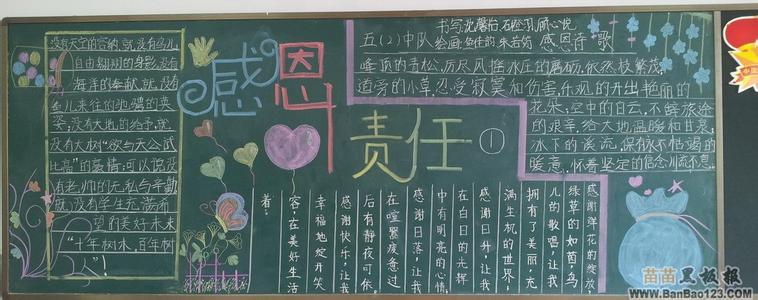 没有天空的容纳,就没有鸟儿
自由翱翔的身影;没有
海洋的奉献,就没有
鱼儿来往的驰骋的英
姿;没有大地的给予,就
没有大树“欲与天公试
比高”的豪情;可以说没
有老师的无私与辛勤
就没有学生充满希
望的美好未来
“十年树木,百年树
人”!
感恩
责任
①
书写:沈馨怡 石
五(2)中队
绘画:
感恩诗歌
峰顶的青松,历尽风摧冰压的磨砺,依然枝繁茂,
道旁的小草,忍受寂寞和伤害,乐观的开出艳丽的
花朵;空中的白云,不辞旅途
的艰辛,给大地温暖和甘泉,
冰下的溪流,深有永不枯竭的
暖意,怀着坚定的信念川流不息。
感谢鲜花的绽放,
绿草的如茵,鸟
儿的歌唱,让我
拥有了美丽,充
满生机的世界,
感谢日升,让我
在白日的光辉
中有明亮的心情,
感谢日落,让我
在喧嚣疲惫过
后有静夜可依。
感谢快乐,让我
幸福地绽开笑
容,在美好生活
着。
苗苗黑板报
www.BanBao123.com